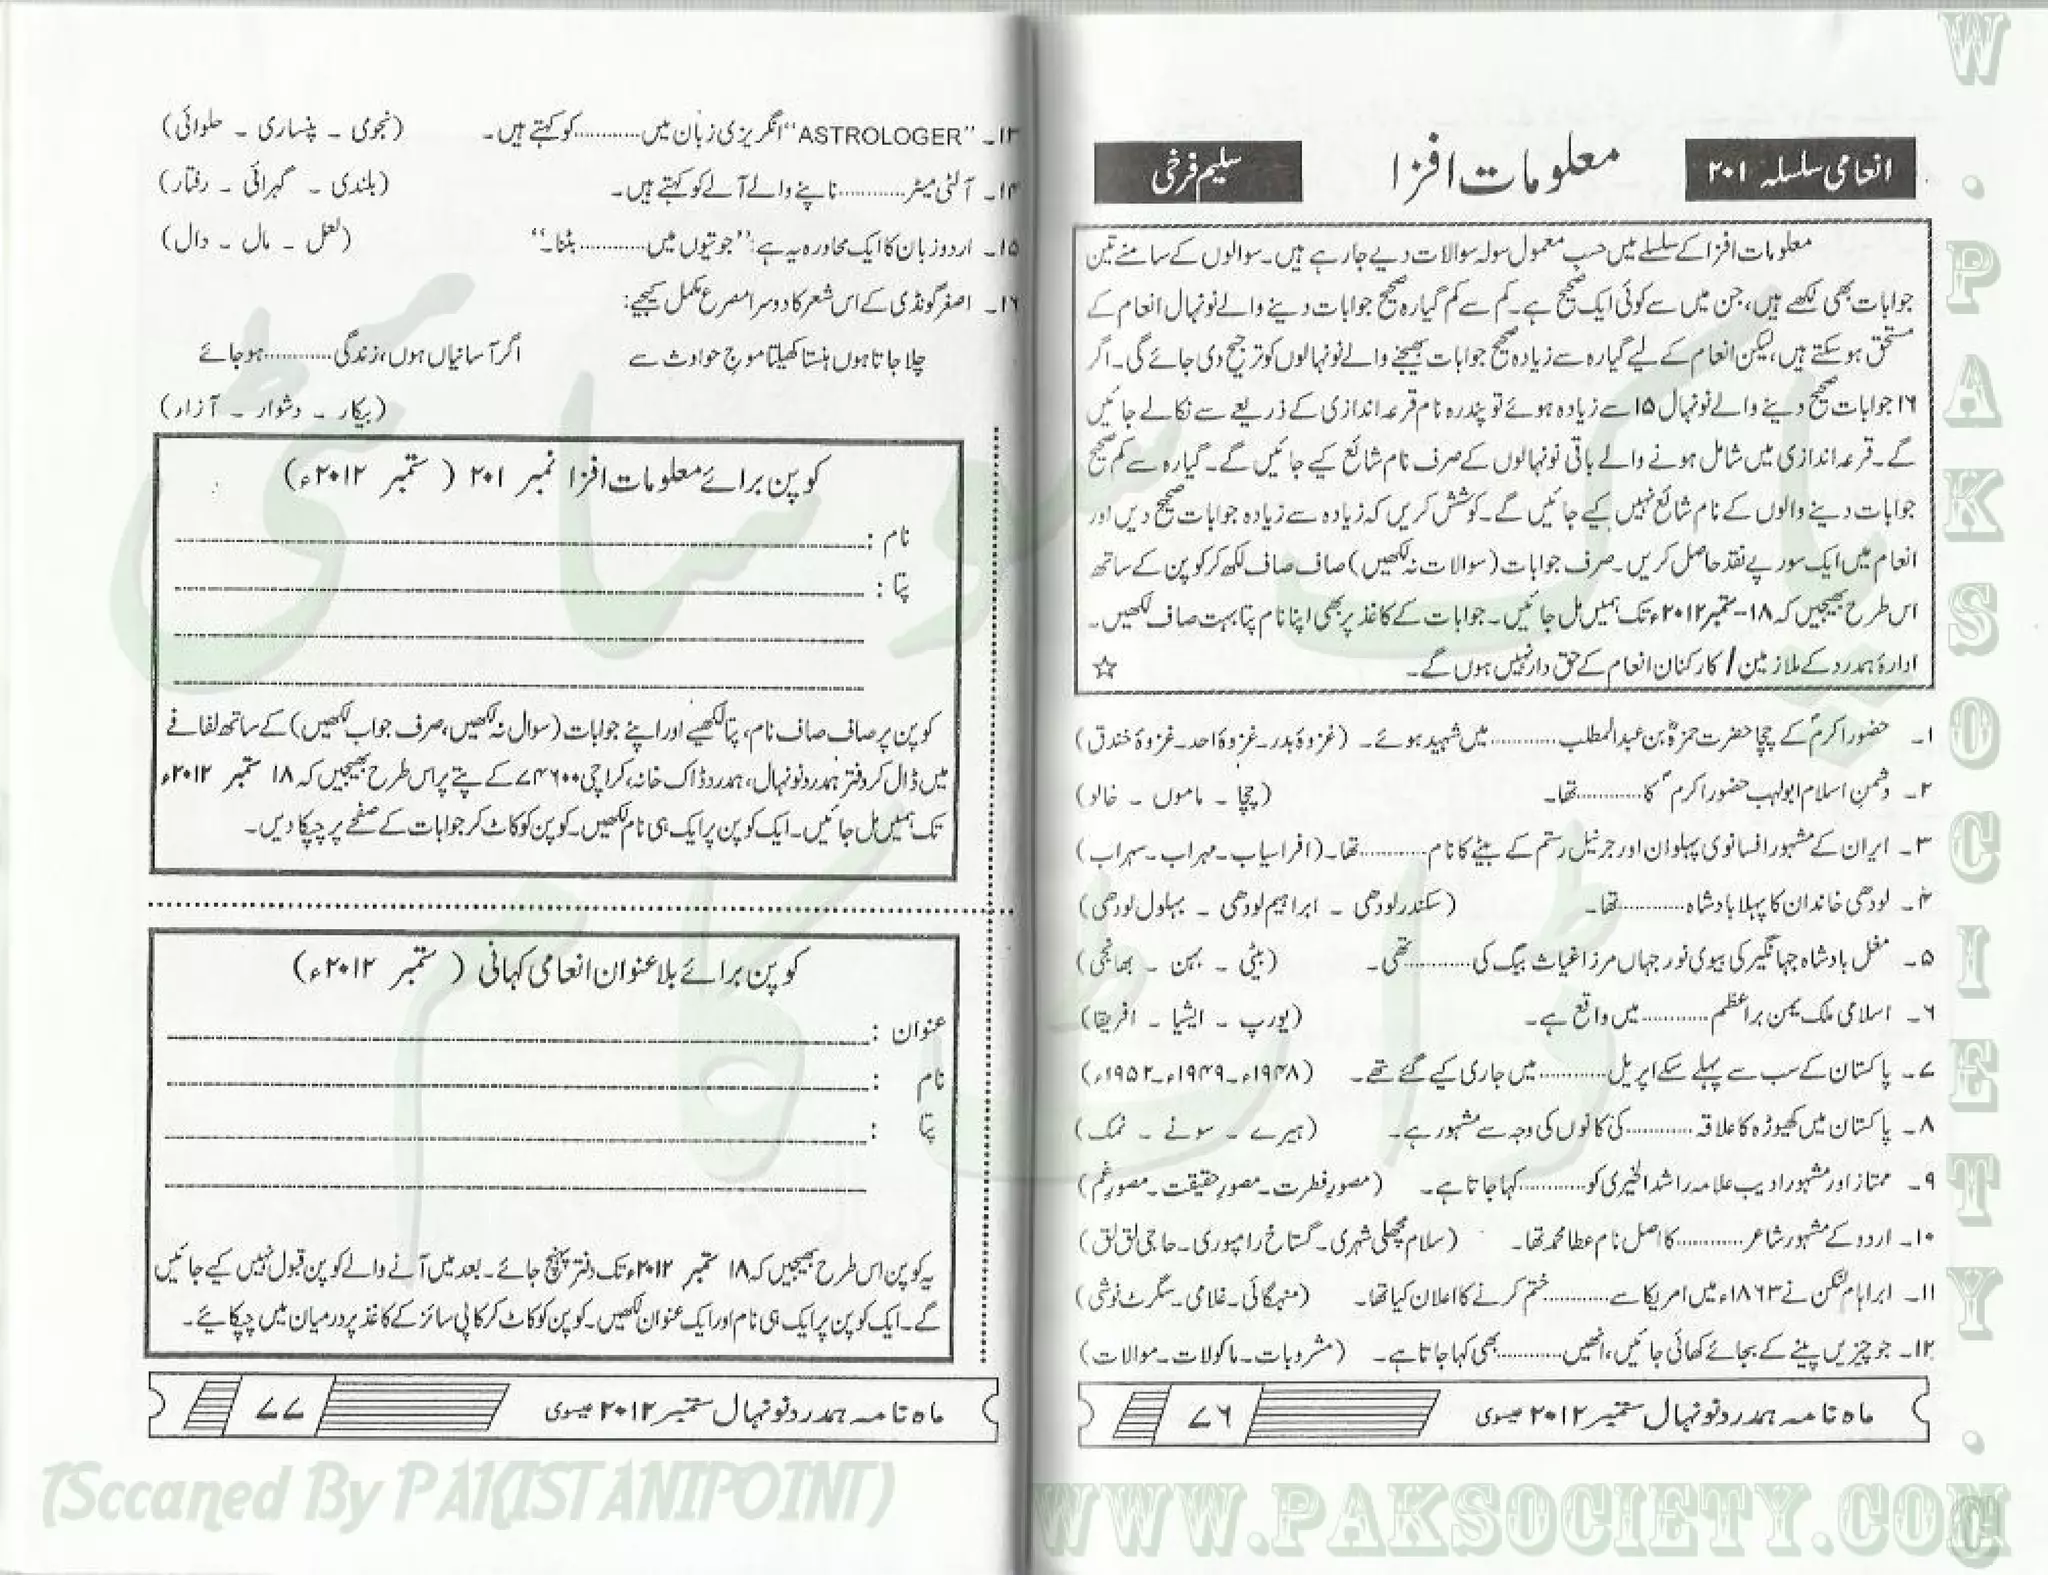 انعامی سلسلہ ۲۰۱
معلومات افزا
سلیم فرخی
معلومات افزا کے سلسلے میں حسب معمول سولہ سوالات دیے جا رہے ہیں۔ سوالوں کے سامنے تین
جوابات بھی لکھے ہیں، جن میں سے کوئی ایک صحیح ہے۔ کم سے کم گیارہ صحیح جوابات دینے والے نونہال انعام کے
مستحق ہو سکتے ہیں، لیکن انعام کے لیے گیارہ سے زیادہ صحیح جوابات بھیجنے والے نونہالوں کو ترجیح دی جائے گی۔ اگر
۱۶ جوابات صحیح دینے والے نونہال ۱۵ سے زیادہ ہوئے تو پندرہ نام قرعہ اندازی کے ذریعے سے نکالے جائیں
گے۔ قرعہ اندازی میں شامل ہونے والے باقی نونہالوں کے صرف نام شائع کیے جائیں گے۔ گیارہ سے کم صحیح
جوابات دینے والوں کے نام شائع نہیں کیے جائیں گے۔ کوشش کریں کہ زیادہ سے زیادہ جوابات صحیح دیں اور
انعام میں ایک سو رپے نقد حاصل کریں۔ صرف جوابات (سوالات نہ لکھیں) صاف صاف لکھ کر کوپن کے ساتھ
اس طرح بھیجیں کہ ۱۸-ستمبر ۲۰۱۲ء تک ہمیں مل جائیں۔ جوابات کے کاغذ پر بھی اپنا نام پتا بہت صاف لکھیں۔
ادارۂ ہمدرد کے ملازمین / کارکنان انعام کے حق دار نہیں ہوں گے۔ ☆
۱۔ حضور اکرمؐ کے چچا حضرت حمزہؓ بن عبدالمطلب ............ میں شہید ہوئے۔ (غزوۂ بدر۔ غزوۂ احد۔ غزوۂ خندق)
۲۔ دشمنِ اسلام ابولہب حضور اکرمؐ کا ............ تھا۔ (چچا ۔ ماموں ۔ خالو)
۳۔ ایران کے مشہور افسانوی پہلوان اور جرنیل رستم کے بیٹے کا نام ............ تھا۔ (افراسیاب۔ مہراب۔ سہراب)
۴۔ لودھی خاندان کا پہلا بادشاہ ............ تھا۔ (سکندر لودھی ۔ ابراہیم لودھی ۔ بہلول لودھی)
۵۔ مغل بادشاہ جہانگیر کی بیوی نور جہاں مرزا غیاث بیگ کی ............ تھی۔ (بیٹی ۔ بہن ۔ بھانجی)
۶۔ اسلامی ملک یمن براعظم ............ میں واقع ہے۔ (یورپ ۔ ایشیا ۔ افریقا)
۷۔ پاکستان کے سب سے پہلے سکے اپریل ............ میں جاری کیے گئے تھے۔ (۱۹۴۸ء۔ ۱۹۴۹ء۔ ۱۹۵۲ء)
۸۔ پاکستان میں کھیوڑہ کا علاقہ ............ کی کانوں کی وجہ سے مشہور ہے۔ (ہیرے ۔ سونے ۔ نمک)
۹۔ ممتاز اور مشہور ادیب علامہ راشد الخیری کو ............ کہا جاتا ہے۔ (مصورِ فطرت۔ مصورِ حقیقت۔ مصورِ غم)
۱۰۔ اردو کے مشہور شاعر ............ کا اصل نام عطا محمد تھا۔ (سلام مچھلی شہری۔ گستاخ رامپوری۔ حاجی لق لق)
۱۱۔ ابراہام لنکن نے ۱۸۶۳ء میں امریکا سے ............ ختم کرنے کا اعلان کیا تھا۔ (مہنگائی۔ غلامی۔ سگرٹ نوشی)
۱۲۔ جو چیزیں پینے کے بجائے کھائی جائیں، انھیں ............ بھی کہا جاتا ہے۔ (مشروبات۔ ماکولات۔ سوالات)
ماہ نامہ ہمدرد نونہال ستمبر ۲۰۱۲ عیسوی ۷۶
۱۳۔ "ASTROLOGER" انگریزی زبان میں ............ کو کہتے ہیں۔ (نجومی ۔ پنساری ۔ حلوائی)
۱۴۔ آلٹی میٹر ............ ناپنے والے آلے کو کہتے ہیں۔ (بلندی ۔ گہرائی ۔ رفتار)
۱۵۔ اردو زبان کا ایک محاورہ یہ ہے: "جوتیوں میں ............ بٹنا۔" (لعل ۔ مال ۔ دال)
۱۶۔ اصغر گونڈی کے اس شعر کا دوسرا مصرع مکمل کیجیے:
چلا جاتا ہوں ہنستا کھیلتا موجِ حوادث سے اگر آسانیاں ہوں، زندگی ............ ہو جائے
(بیکار ۔ دشوار ۔ آزار)
کوپن برائے معلومات افزا نمبر ۲۰۱ (ستمبر ۲۰۱۲ء)
نام :
پتا :
کوپن پر صاف صاف نام، پتا لکھیے اور اپنے جوابات (سوال نہ لکھیں، صرف جواب لکھیں) کے ساتھ لفافے
میں ڈال کر دفتر ہمدرد نونہال، ہمدرد ڈاک خانہ، کراچی ۷۴۶۰۰ کے پتے پر اس طرح بھیجیں کہ ۱۸ ستمبر ۲۰۱۲ء
تک ہمیں مل جائیں۔ ایک کوپن پر ایک ہی نام لکھیں۔ کوپن کو کاٹ کر جوابات کے صفحے پر چپکا دیں۔
کوپن برائے بلا عنوان انعامی کہانی (ستمبر ۲۰۱۲ء)
عنوان :
نام :
پتا :
یہ کوپن اس طرح بھیجیں کہ ۱۸ ستمبر ۲۰۱۲ء تک دفتر پہنچ جائے۔ بعد میں آنے والے کوپن قبول نہیں کیے جائیں
گے۔ ایک کوپن پر ایک ہی نام اور ایک عنوان لکھیں۔ کوپن کو کاٹ کر کاپی سائز کے کاغذ پر درمیان میں چپکائیے۔
ماہ نامہ ہمدرد نونہال ستمبر ۲۰۱۲ عیسوی ۷۷
پاک سوسائٹی
ڈاٹ کام
(Sccaned By PAKISTANIPOINT)
WWW.PAKSOCIETY.COM
W.PAKSOCIETY.C